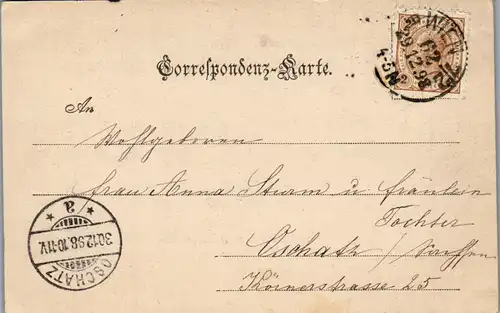 WIEN
62
29.12.98
4-5N
Correspondenz-Karte.
An
Wohlgeboren
Frau Anna Sturm u fräulein
Tochter
Oschatz / Sachsen
Körnerstrasse 25
* a *
30.12.98.10-11V.
OSCHATZ